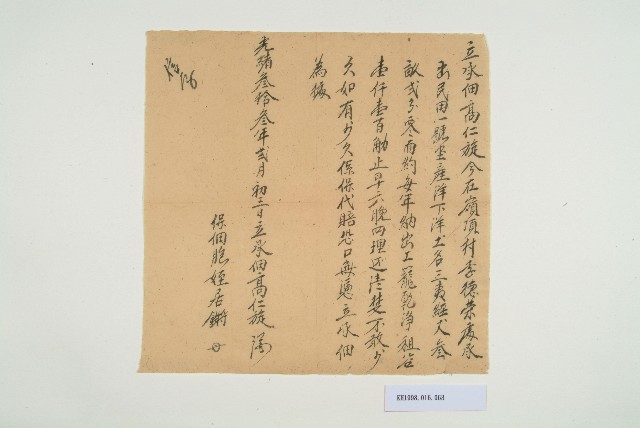 立承佃高仁旋今在嶺頂村李德榮處承
出民田一號坐產洋下洋土名三 經丈叁
畝弍分零而約每年納出工籠乾净租谷
壹仟壹百觔止早六晚四理还清楚不敢少
欠如有少欠保佃代賠恐口無憑立承佃
為據
光緒叁拾叁年弍月初三日立承佃高仁旋
保佃胞姪居
KE1998.016.063